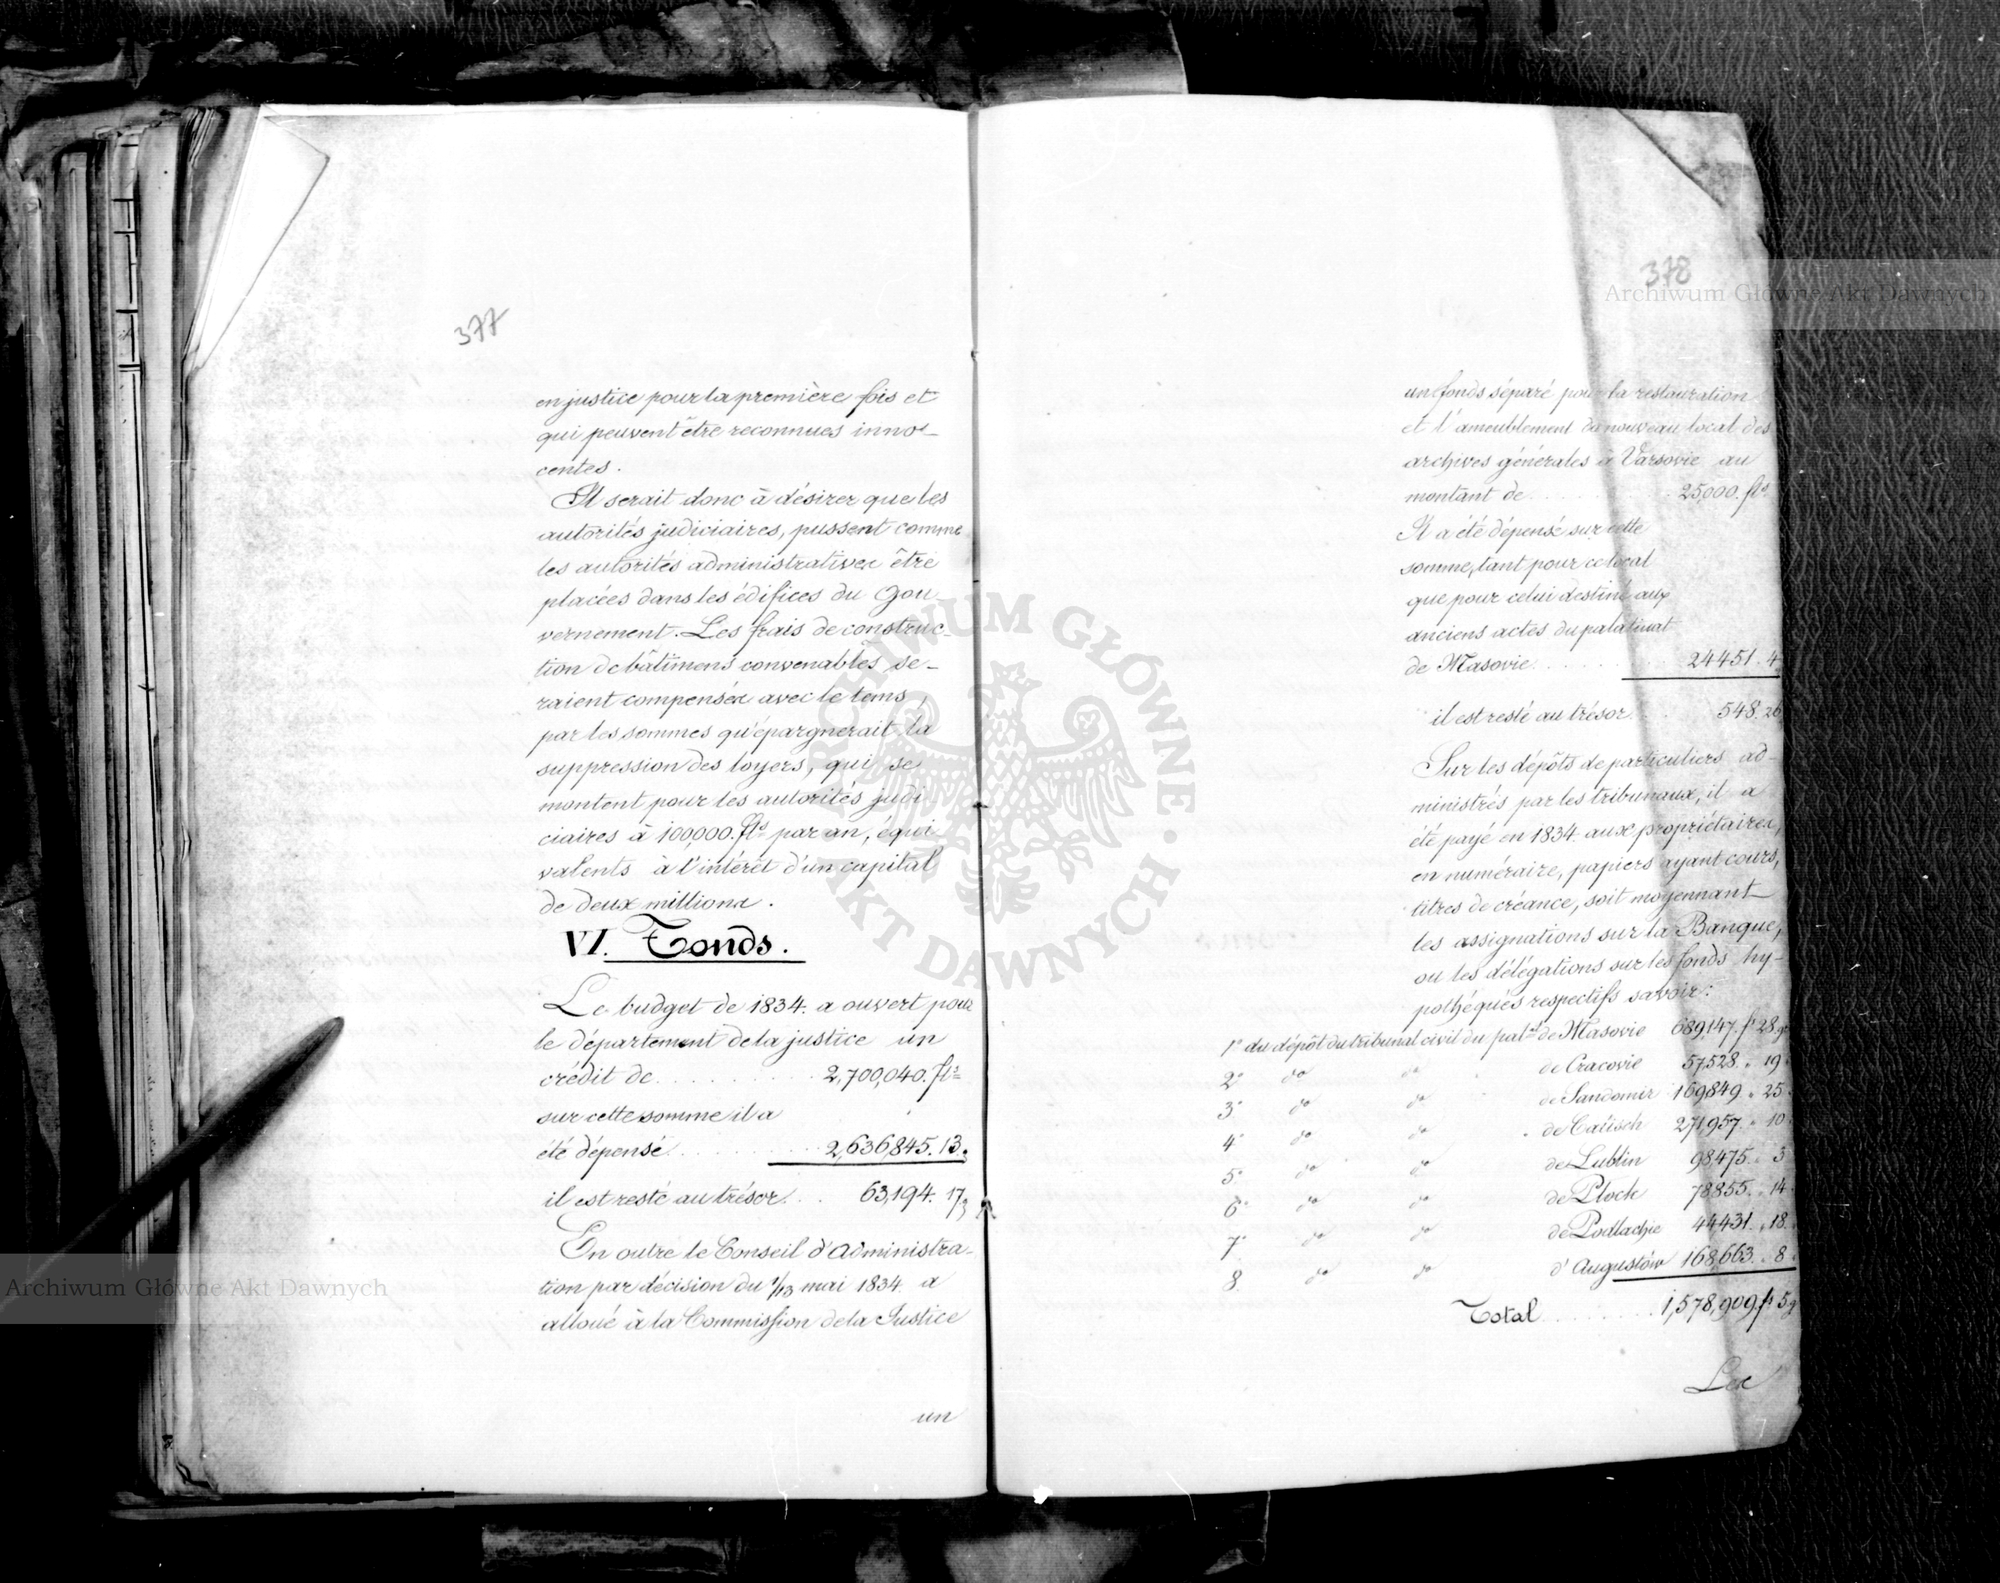 377
en justice pour la première fois et
qui peuvent être reconnues inno-
centes.
Il serait donc à désirer que les
autorités judiciaires, pussent comme
les autorités administratives être
placées dans les édifices du Gou-
vernement. Les frais de construc-
tion de bâtimens convenables se-
raient compensés avec le tems,
par les sommes qu'épargnerait la
suppression des loyers, qui se
montent pour les autorités judi-
ciaires à 100,000. fls par an, équi-
valents à l'intérêt d'un capital
de deux millions.
VI. Fonds.
Le budget de 1834. a ouvert pour
le département de la justice un
crédit de . . . . . . . . . 2,700,040. fls
sur cette somme il a
été dépensé . . . . . . . . . 2,636,845. 13.
il est resté au trésor . . . 63,194. 17
En outre le Conseil d'Administra-
tion par décision du 1/13 mai 1834. a
alloué à la Commission de la Justice
un
378
un fonds séparé pour la restauration
et l'ameublement du nouveau local des
archives générales à Varsovie au
montant de . . . . . . . . . 25,000. fls
Il a été dépensé sur cette
somme, tant pour ce local
que pour celui destiné aux
anciens actes du palatinat
de Masovie . . . . . . . . . 24451. 4
il est resté au trésor . . . 548. 26
Sur les dépôts de particuliers ad-
ministrés par les tribunaux, il a
été payé en 1834. aux propriétaires,
en numéraire, papiers ayant cours,
titres de créance, soit moyennant
les assignations sur la Banque,
ou les délégations sur les fonds hy-
pothéqués respectifs savoir:
1° du dépôt du tribunal civil du palat de Masovie 689,147. fl 28 gr
2° do do de Cracovie 57,528. " 19
3° do do de Sandomir 169,849. " 25
4° do do de Calisch 271,957. " 10
5° do do de Lublin 98,475. " 3
6° do do de Plock 78,855. " 14
7° do do de Podlachie 44,431. " 18
8. do do d'Augustów 168,663. " 8
Total . . . . . . . 1,578,909. fl 5 g
Les
Archiwum Główne Akt Dawnych
Archiwum Główne Akt Dawnych
ARCHIWUM GŁÓWNE AKT DAWNYCH